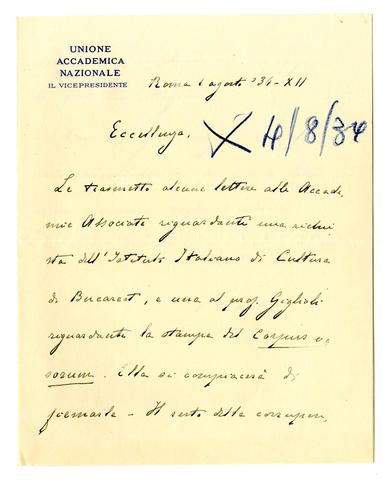 UNIONE
ACCADEMICA
NAZIONALE
IL VICEPRESIDENTE
Roma 1 agosto '34-XII
Eccellenza,
X 4/8/34
Le trasmetto alcune lettere alle Accade
mie Associate riguardanti una richie
sta dell'Istituto Italiano di Cultura
di Bucarest, e una al prof. Giglioli
riguardante la stampa del Corpus va
sorum. Ella si compiacerà di
firmarle - Il resto della corrispon,